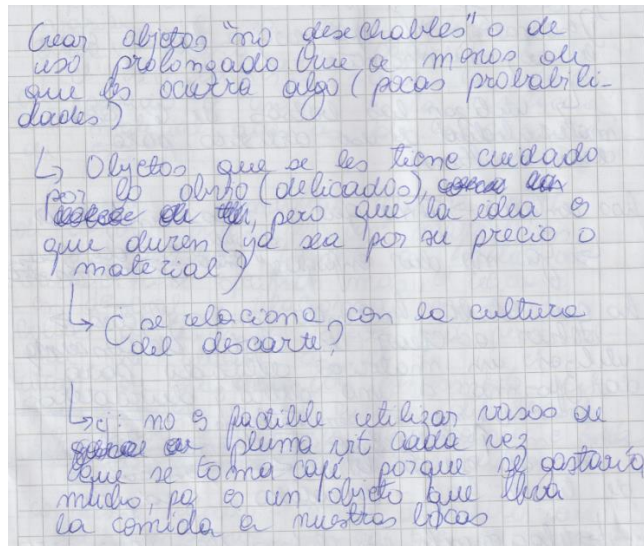 Crear objetos "no desechables" o de
uso prolongado que a menos de
que les ocurra algo (pocas probabili-
dades)
↳ Objetos que se les tiene cuidado
por lo obvio (delicados),
, pero que la idea es
que duren (ya sea por su precio o
material)
↳ ¿se relaciona con la cultura
del descarte?
↳ ej: no es factible utilizar vasos de
pluma vit cada vez
que se toma café porque se gastaría
mucho, pq es un objeto que lleva
la comida a nuestras bocas